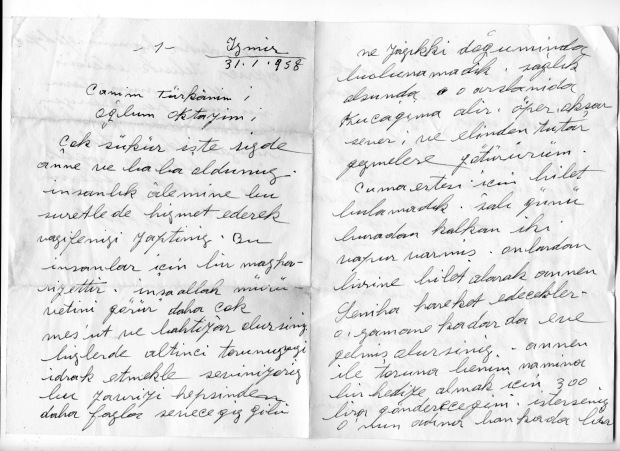 -1-
İzmir
31.1.958
Canım Türkânım;
Oğlum Oktayım;
Çok şükür işte sizde
anne ve baba oldunuz.
insanlık âlemine bu
suretlede hizmet ederek
vazifenizi yaptınız. Bu
insanlar için bir mazha-
riyettir. inşaallah mürü-
vetini görür daha çok
mes'ut ve bahtiyar olursınız.
bizlerde altıncı torunuzuzı
idrak etmekle seviniyoruz
bu yavruyı hepsinden
daha fazla seveceğiz gibi
ne yazıkki doğumında
bulunamadık. sağlık
olsunda o arslanıda
Kucağıma alır. öper okşar
sever; ve elinden tutar
gezmelere götürürüm.
Cumaertesi için bilet
bulamadık. salı günü
buradan kalkan iki
vapur varmış. onlardan
birine bilet alarak annen
Seniha hareket edecekler-
o zamana kadar da eve
gelmiş olursınız. annen
ile toruna benim namıma
bir hediye almak için 300
lira göndereceğim. istersenız
O'nun adına bankada